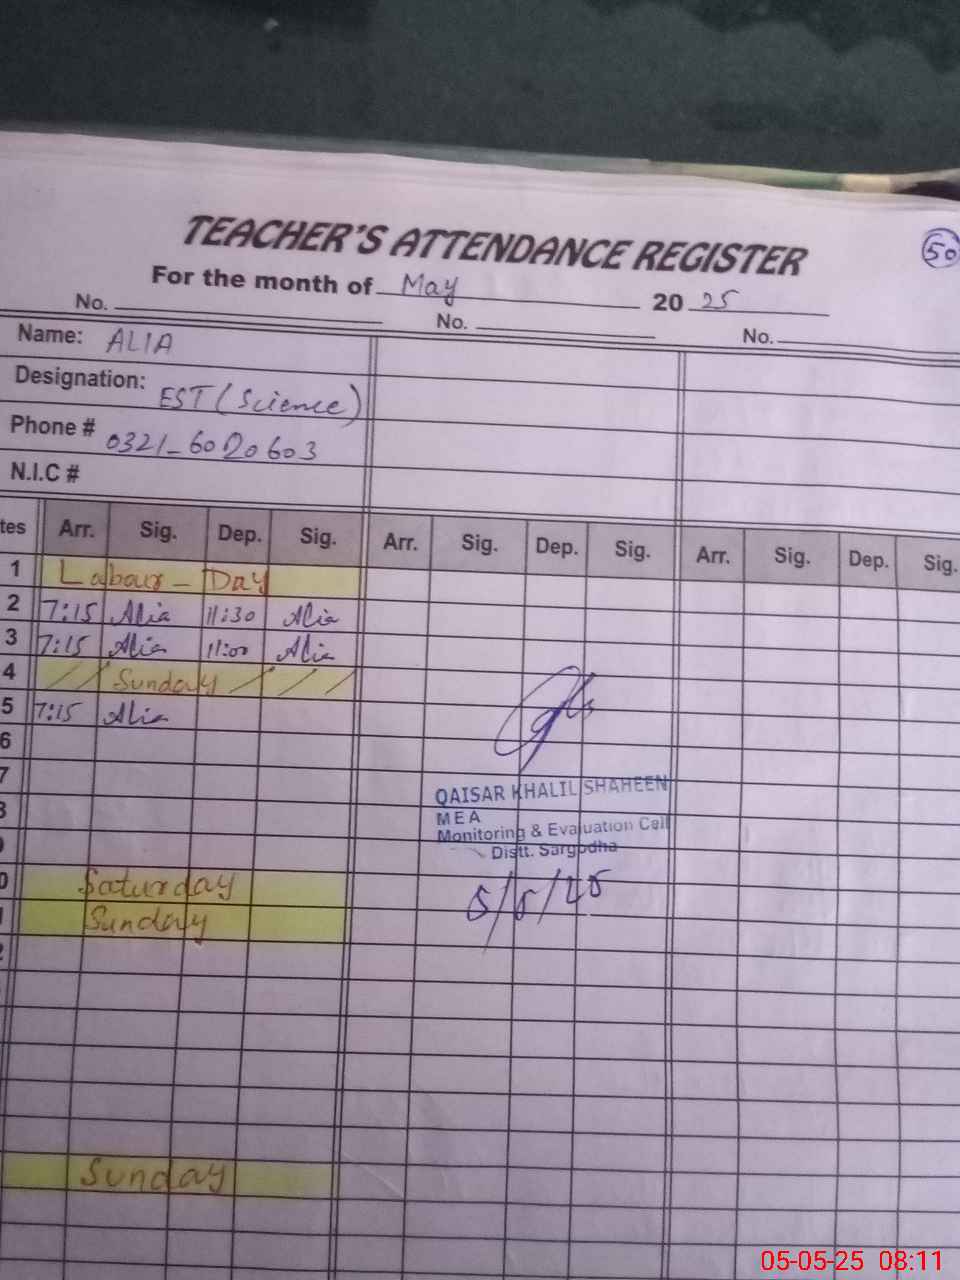 TEACHER'S ATTENDANCE REGISTER
50
For the month of May 20 25
No. No. No.
Name: ALIA
Designation: EST (Science)
Phone # 0321-6020603
N.I.C #
tes Arr. Sig. Dep. Sig. Arr. Sig. Dep. Sig. Arr. Sig. Dep. Sig.
1 Labour - Day
2 7:15 Alia 11:30 Alia
3 7:15 Alia 11:00 Alia
4 Sunday
5 7:15 Alia
6
7
QAISAR KHALIL SHAHEEN
MEA
Monitoring & Evaluation Cell
Distt. Sargodha
0 Saturday
5/5/25
Sunday
Sunday
05-05-25 08:11